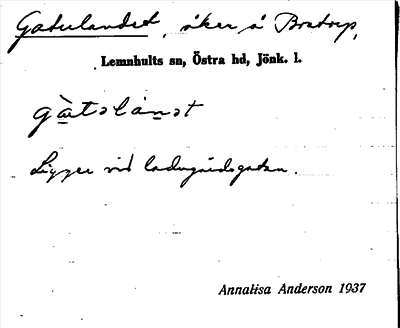 Gatulandet, åker å Bratorp,
Lemnhults sn, Östra hd, Jönk. l.
gàtəlánət
Ligger vid ladugårdsgatan.
Annalisa Anderson 1937